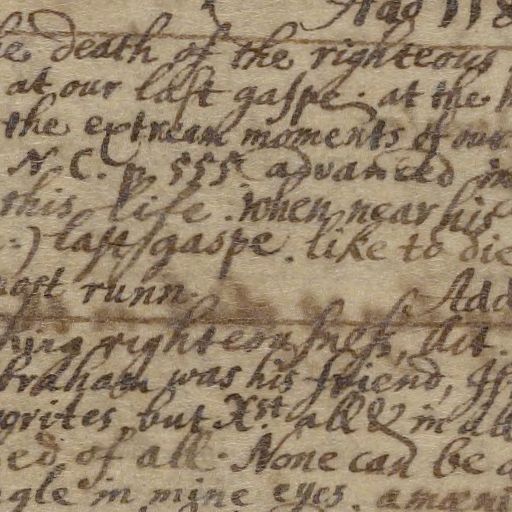 Add 118
he death of the righteous
at our last gaspe. at the
the extream moments of our
N. C. p. 555. advanced in
this life. when near his
:) last gaspe. like to die
most runn. Add
hing righteousness, dit.
braham was his friend, Is
vorites, but Xst. all & in all
ed of all. None can be
ngle in mine eyes. amœni